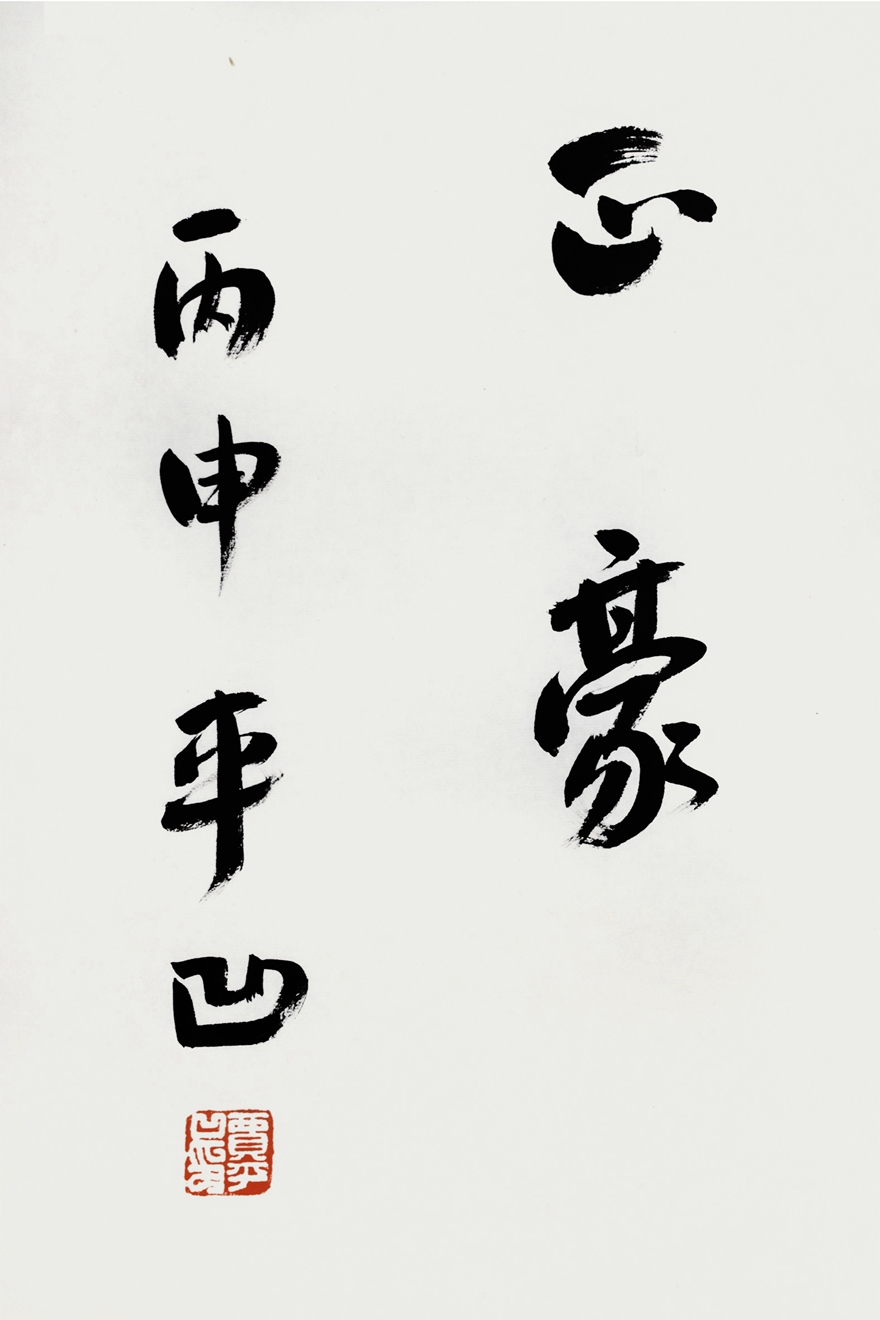 正豪
丙申 平凹
賈平凹印